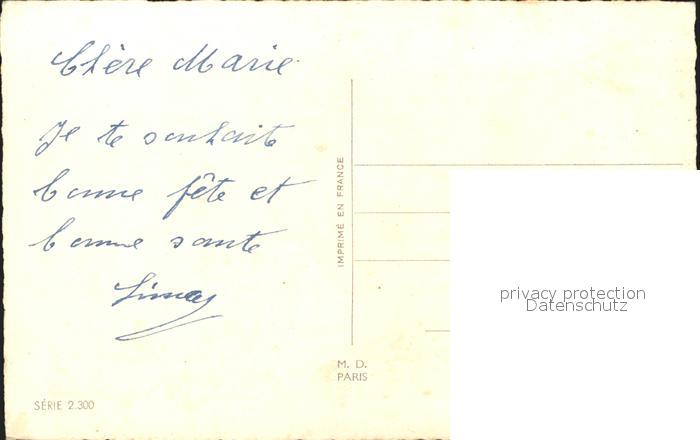 Chère Marie
Je te souhaite
bonne fête et
bonne sante
IMPRIMÉ EN FRANCE
M. D.
PARIS
SÉRIE 2.300
privacy protection
Datenschutz